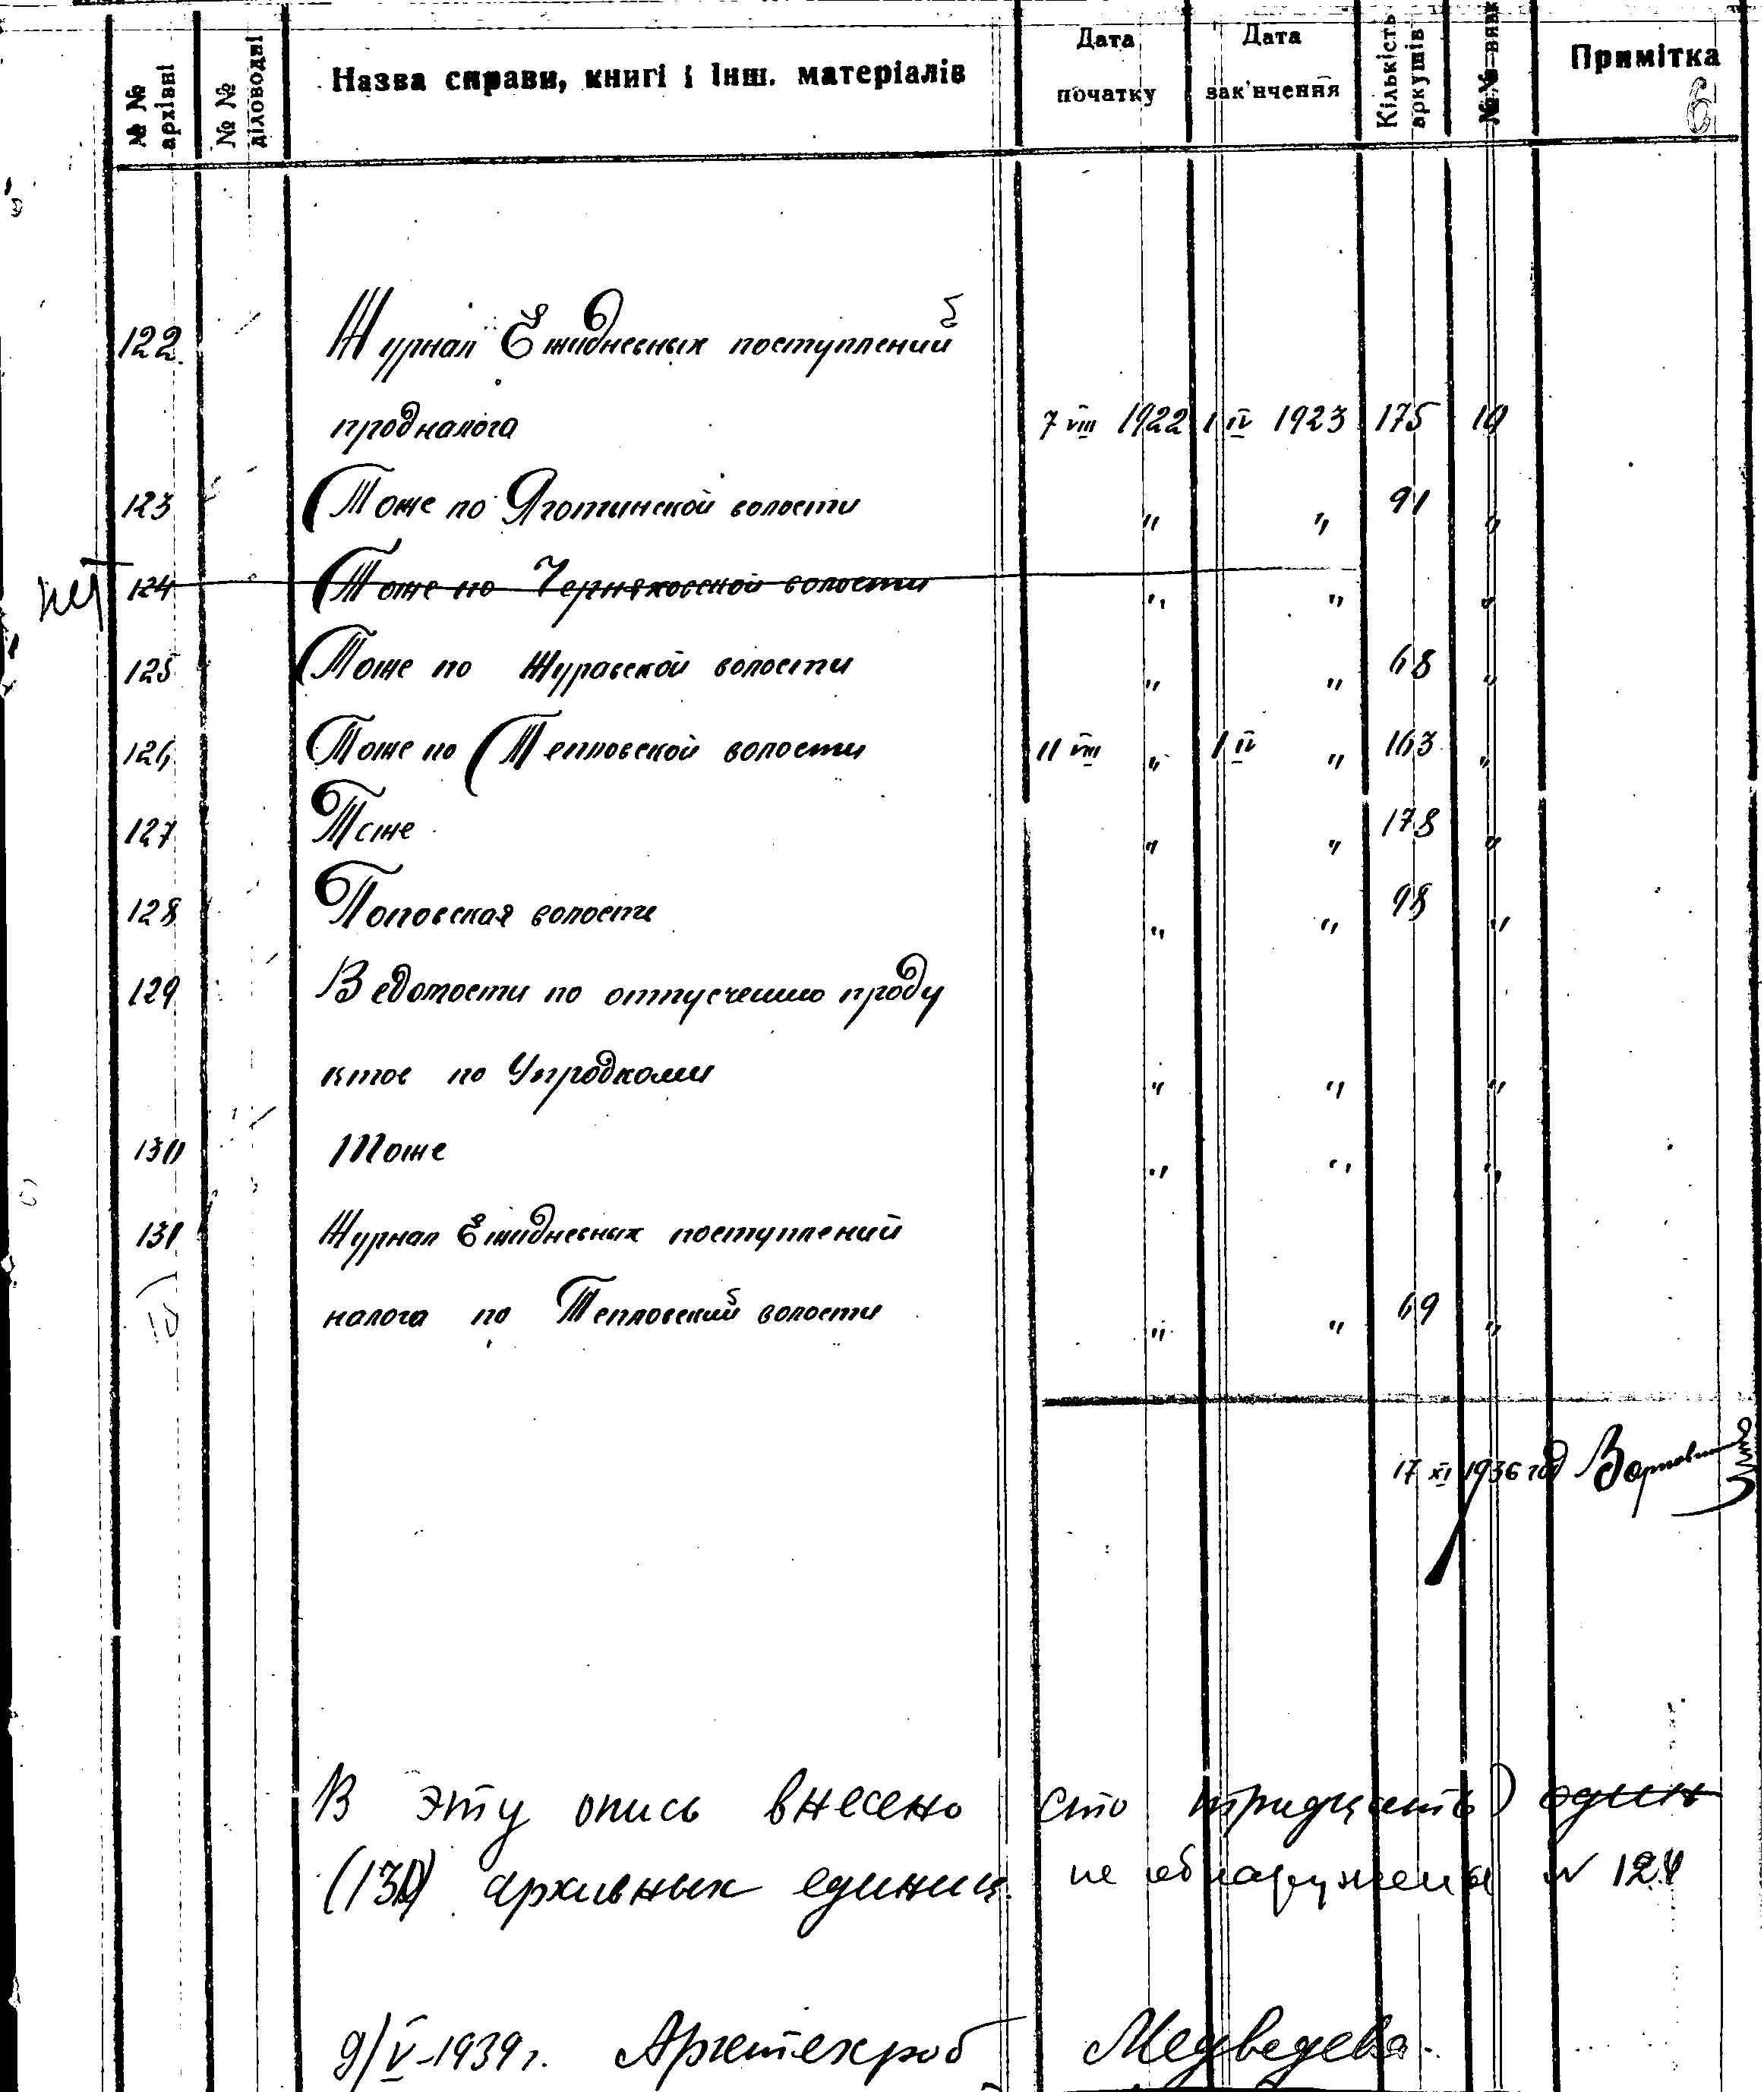 № № архівні
№ № діловодні
Назва справи, книгі і Інш. матеріалів
Дата початку
Дата зак'нчення
Кількість аркушів
Примітка
6
122. Журнал Ежидневных поступлений
продналога 7 VIII 1922 1 IV 1923 175 10
123 Тоже по Яготинской волости " " 91 "
нет 124 Тоже по Черняховской волости " " "
125 Тоже по Журавской волости " " 68 "
126 Тоже по Тепловской волости 11 VIII " 1 IV " 163 "
127 Тоже " " 178 "
128 Поповская волости " " 98 "
129 Ведомости по отпусчению проду
ктов по Упродкоми " " "
130 Тоже " " "
131 Журнал Ежидневных поступлений
налога по Тепловский волости " " 69 "
17 XI 1936 год
В эту опись внесено сто тридцать один
(130) архивных единиц. не обнаружена № 124
9/V-1939 г. Архтехроб Медведева.